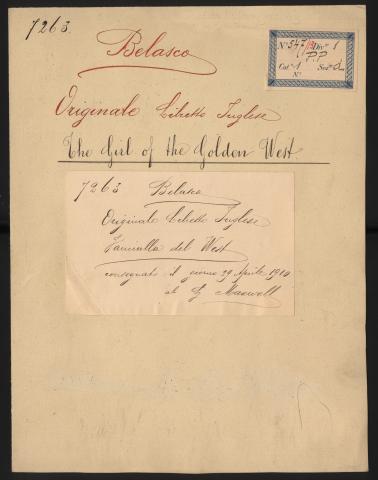 7263
Belasco
Nº 547 Divº 1
P.P
Catª 1 Serº d
Nº
Originale Libretto Inglese
The Girl of the Golden West.
7263 Belasco
Originale Libretto Inglese
Fanciulla del West
consegnato il giorno 29 Aprile 1910
al Maxwell